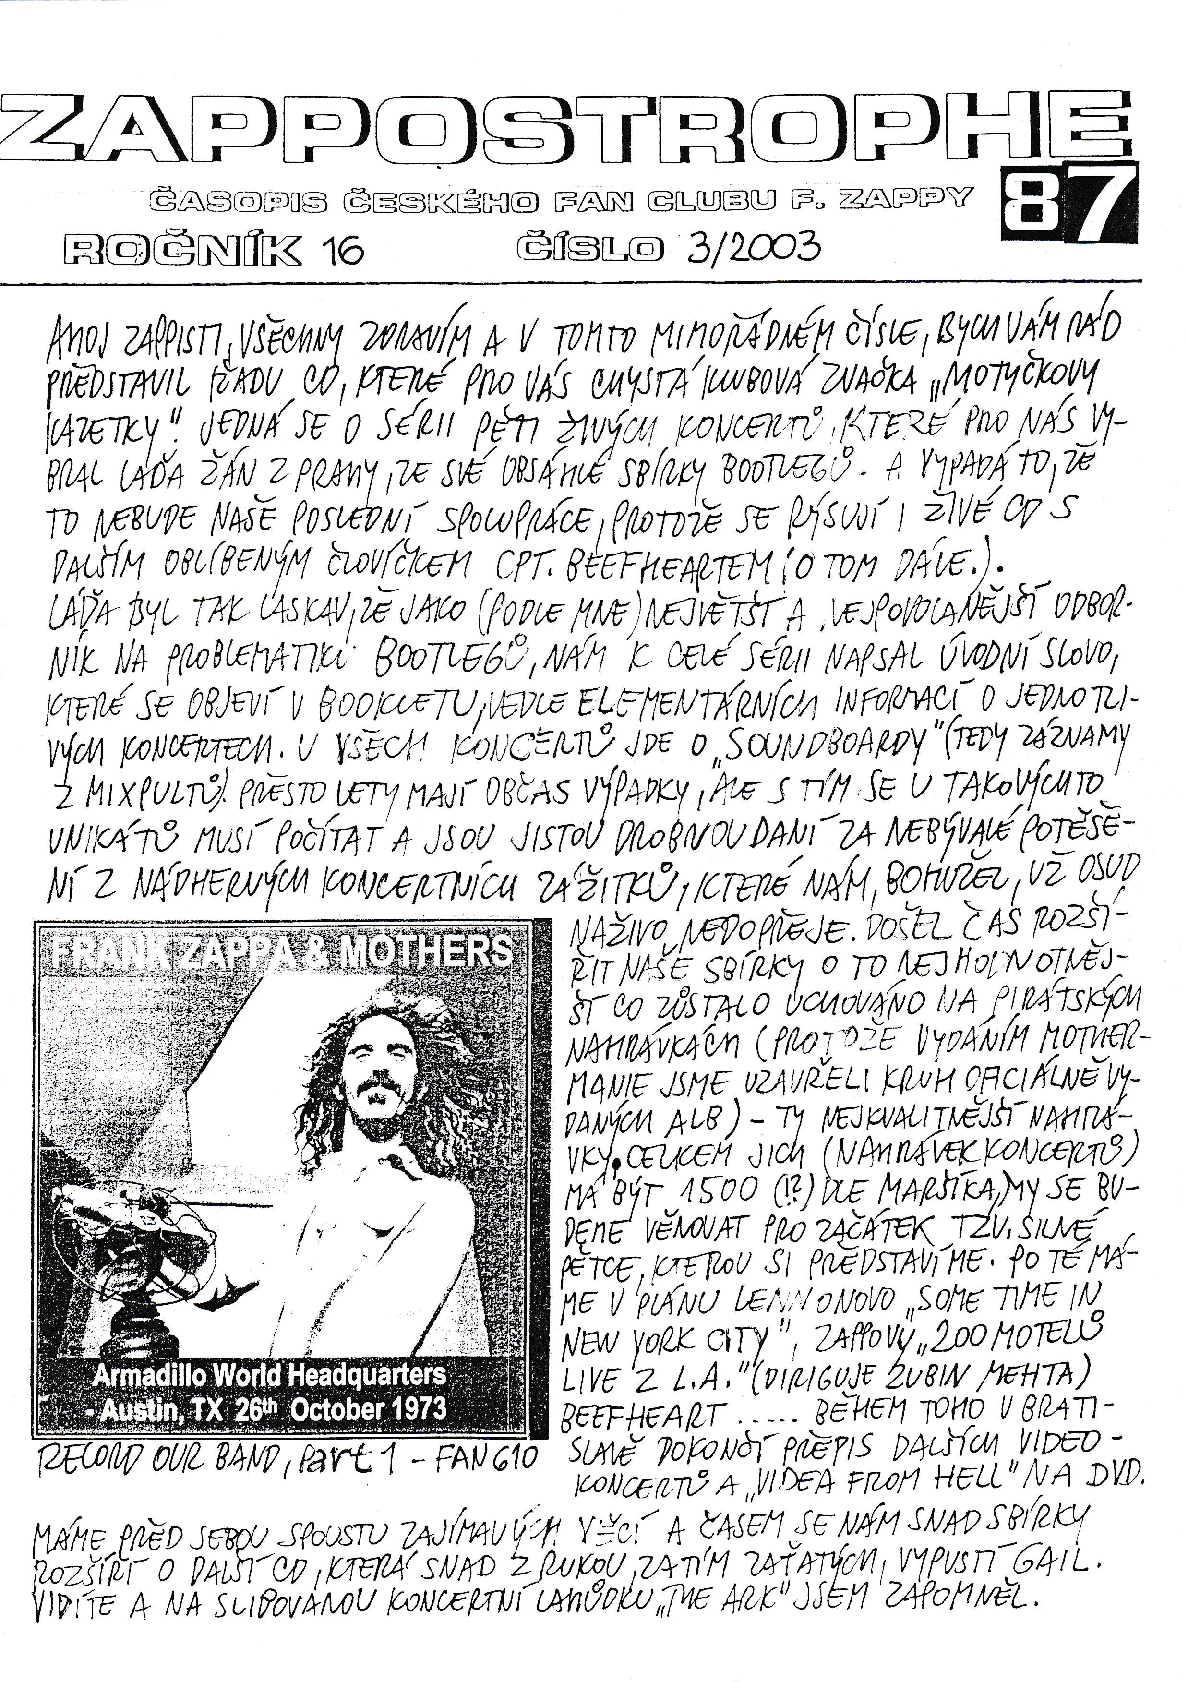 ZAPPOSTROPHE
87
ČASOPIS ČESKÉHO FAN CLUBU F. ZAPPY
ROČNÍK 16 ČÍSLO 3/2003
AHOJ ZAPPISTI, VŠECHNY ZDRAVÍM A V TOMTO MIMOŘÁDNÉM ČÍSLE, BYCH VÁM RÁD
PŘEDSTAVIL ŘADU CD, KTERÉ PRO VÁS CHYSTÁ KLUBOVÁ ZNAČKA „MOTYČKOVY
KAZETKY“. JEDNÁ SE O SÉRII PĚTI ŽIVÝCH KONCERTŮ, KTERÉ PRO NÁS VY-
BRAL LAĎA ŽÁN Z PRAHY, ZE SVÉ OBSÁHLÉ SBÍRKY BOOTLEGŮ. A VYPADÁ TO, ŽE
TO NEBUDE NAŠE POSLEDNÍ SPOLUPRÁCE, PROTOŽE SE RÝSUJÍ I ŽIVÉ CD S
DALŠÍM OBLÍBENÝM ČLOVÍČKEM CPT. BEEFHEARTEM (O TOM DÁLE.).
LÁĎA BYL TAK LASKAV, ŽE JAKO (PODLE MNE) NEJVĚTŠÍ A NEJPOVOLANĚJŠÍ ODBOR-
NÍK NA PROBLEMATIKU BOOTLEGŮ, NÁM K CELÉ SÉRII NAPSAL ÚVODNÍ SLOVO,
KTERÉ SE OBJEVÍ V BOOKLETU, VEDLE ELEMENTÁRNÍCH INFORMACÍ O JEDNOTLI-
VÝCH KONCERTECH. U VŠECH KONCERTŮ JDE O „SOUNDBOARDY“ (TEDY ZÁZNAMY
Z MIXPULTŮ). PŘESTO LETY MAJÍ OBČAS VÝPADKY, ALE S TÍM SE U TAKOVÝCHTO
UNIKÁTŮ MUSÍ POČÍTAT A JSOU JISTOU DROBNOU DANÍ ZA NEBÝVALÉ POTĚŠE-
NÍ Z NÁDHERNÝCH KONCERTNÍCH ZÁŽITKŮ, KTERÉ NÁM, BOHUŽEL, UŽ OSUD
NAŽIVO NEDOPŘEJE. DOŠEL ČAS ROZŠÍ-
ŘIT NAŠE SBÍRKY O TO NEJHODNOTNĚJ-
ŠÍ CO ZŮSTALO UCHOVÁNO NA PIRÁTSKÝCH
NAHRÁVKÁCH (PROTOŽE VYDÁNÍM MOTHER-
MANIE JSME UZAVŘELI KRUH OFICIÁLNĚ VY-
DANÝCH ALB) - TY NEJKVALITNĚJŠÍ NAHRÁ-
VKY. CELKEM JICH (NAHRÁVEK KONCERTŮ)
MÁ BÝT 1500 (!?) DLE MARŠÍKA, MY SE BU-
DEME VĚNOVAT PRO ZAČÁTEK TZV. SILNÉ
PĚTCE, KTEROU SI PŘEDSTAVÍME. PO TÉ MÁ-
ME V PLÁNU LENNONOVO „SOME TIME IN
NEW YORK CITY“, ZAPPOVÝ „200 MOTELŮ
LIVE Z L.A.“ (DIRIGUJE ZUBIN MEHTA)
BEEFHEART ..... BĚHEM TOHO V BRATI-
SLAVĚ DOKONČÍ PŘEPIS DALŠÍCH VIDEO-
KONCERTŮ A „VIDEA FROM HELL“ NA DVD.
FRANK ZAPPA & MOTHERS
Armadillo World Headquarters
- Austin, TX 26th October 1973
RECORD OUR BAND, part 1 - FAN 610
MÁME PŘED SEBOU SPOUSTU ZAJÍMAVÝCH VĚCÍ A ČASEM SE NÁM SNAD SBÍRKY
ROZŠÍŘÍ O DALŠÍ CD, KTERÁ SNAD Z RUKOU, ZATÍM ZAŤATÝCH, VYPUSTÍ GAIL.
VIDÍTE A NA SLIBOVANOU KONCERTNÍ LAHŮDKU „THE ARK“ JSEM ZAPOMNĚL.